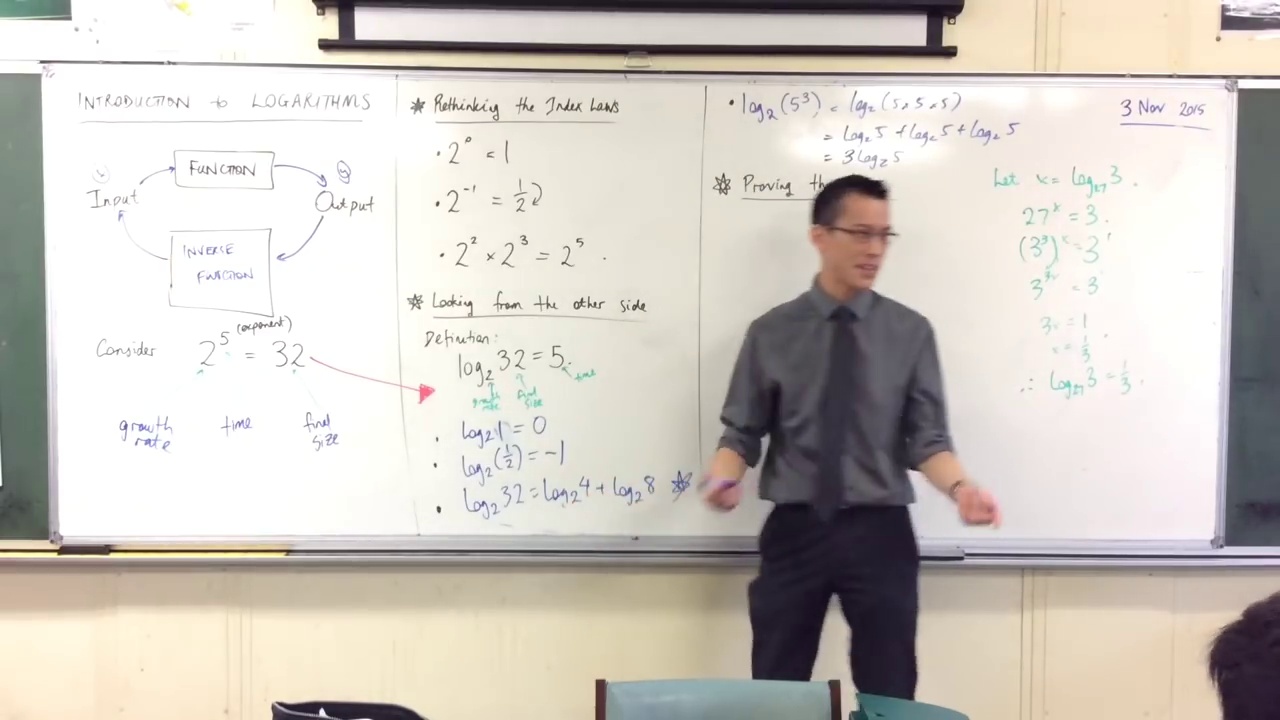 INTRODUCTION to LOGARITHMS
FUNCTION
Input
Output
INVERSE
FUNCTION
Consider 2⁵ = 32
(exponent)
growth rate
time
final size
✳ Rethinking the Index Laws
• 2⁰ = 1
• 2⁻¹ = 1/2
• 2² × 2³ = 2⁵.
✳ Looking from the other side
Definition:
log₂ 32 = 5.
growth rate
final size
time
• log₂ 1 = 0
• log₂ (1/2) = -1
• log₂ 32 = log₂ 4 + log₂ 8 ✳
• log₂ (5³) = log₂ (5 × 5 × 5)
= log₂ 5 + log₂ 5 + log₂ 5
= 3 log₂ 5
✳ Proving
3 Nov 2015
Let x = log₂₇ 3.
27ˣ = 3.
(3³)ˣ = 3¹
3³ˣ = 3
3x = 1
x = 1/3
∴ log₂₇ 3 = 1/3.